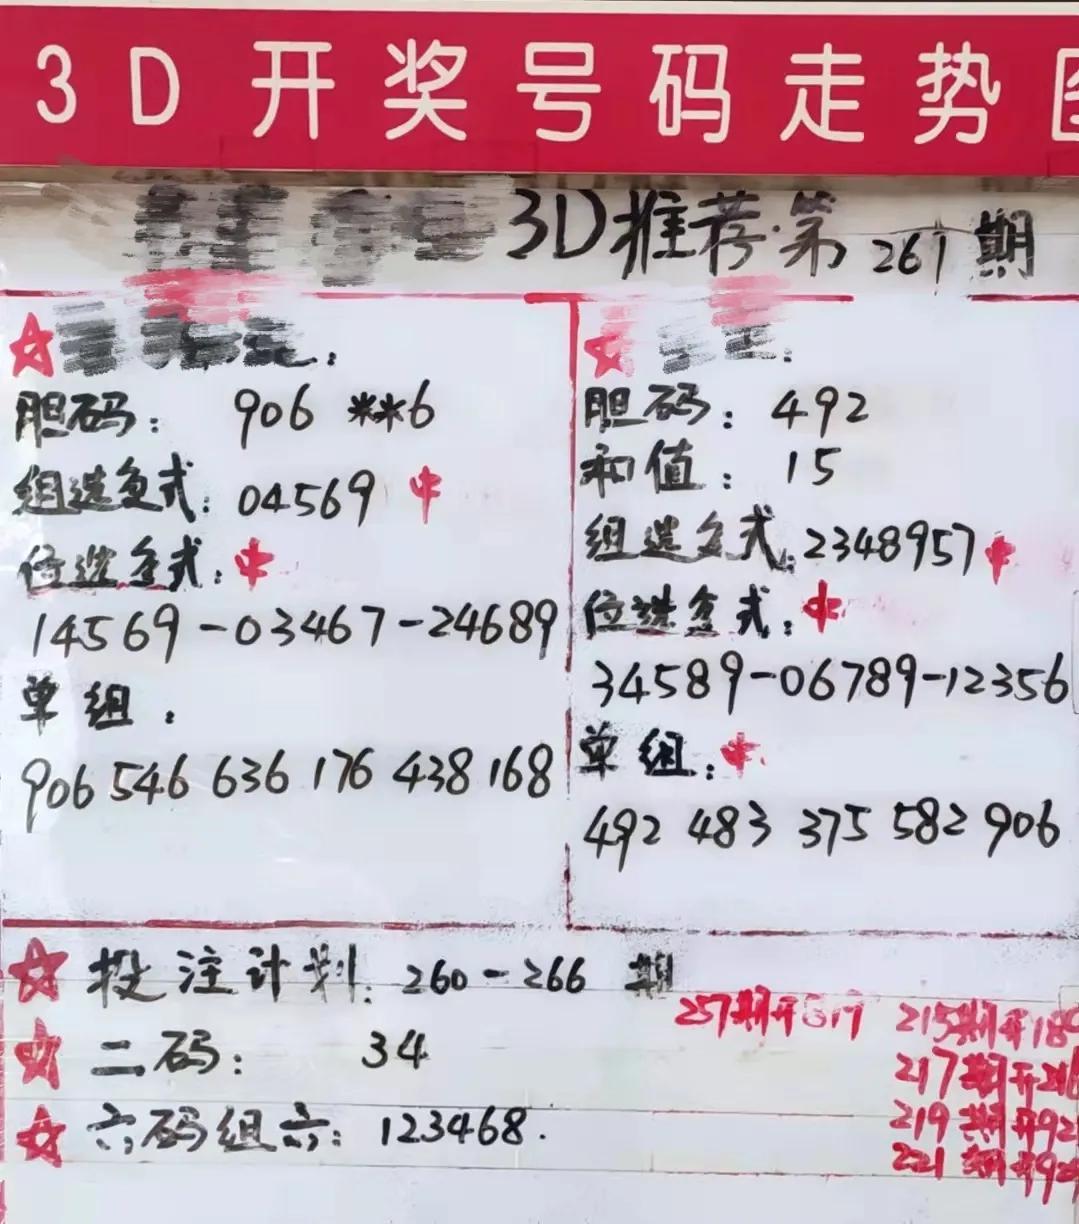 3D开奖号码走势
3D推荐·第261期
胆码: 906 **6
组选复式: 04569 中
位选复式: 中
14569-03467-24689
单组:
906 546 636 176 438 168
胆码: 492
和值: 15
组选复式: 2348957 中
位选复式: 中
34589-06789-12356
单组: 中
492 483 375 582 906
投注计划: 260-266 期
二码: 34
六码组六: 123468.
257期开
215期开18
217期开
219期开92
221期开